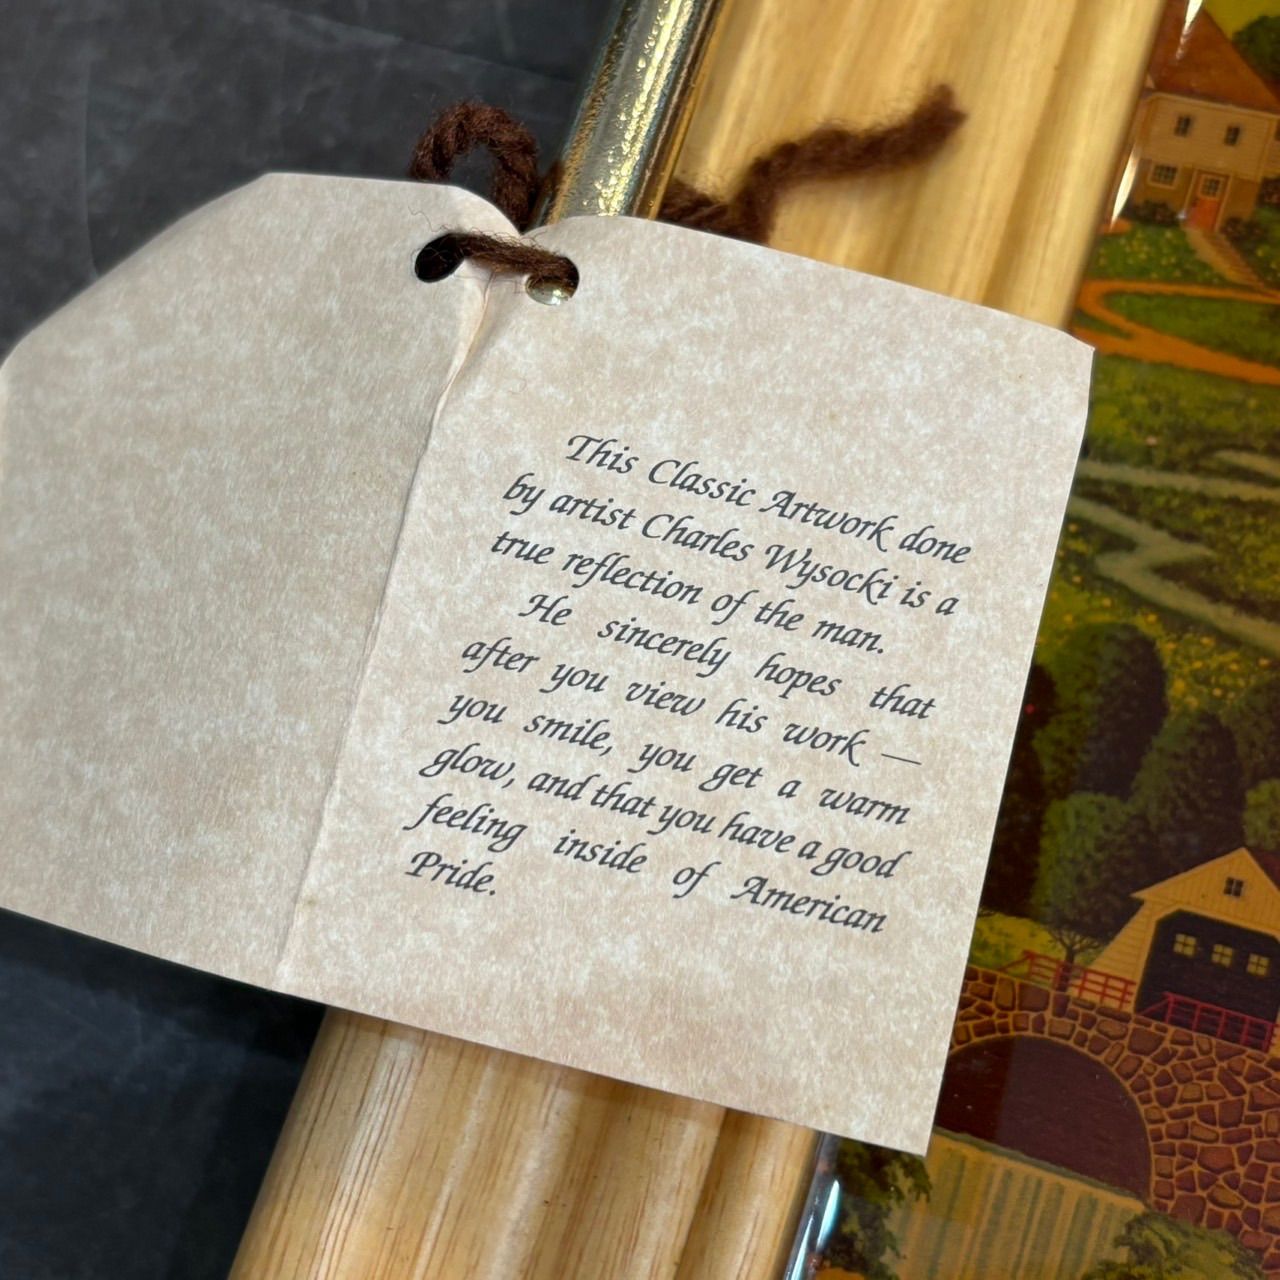 This Classic Artwork done
by artist Charles Wysocki is a
true reflection of the man.
He sincerely hopes that
after you view his work —
you smile, you get a warm
glow, and that you have a good
feeling inside of American
Pride.